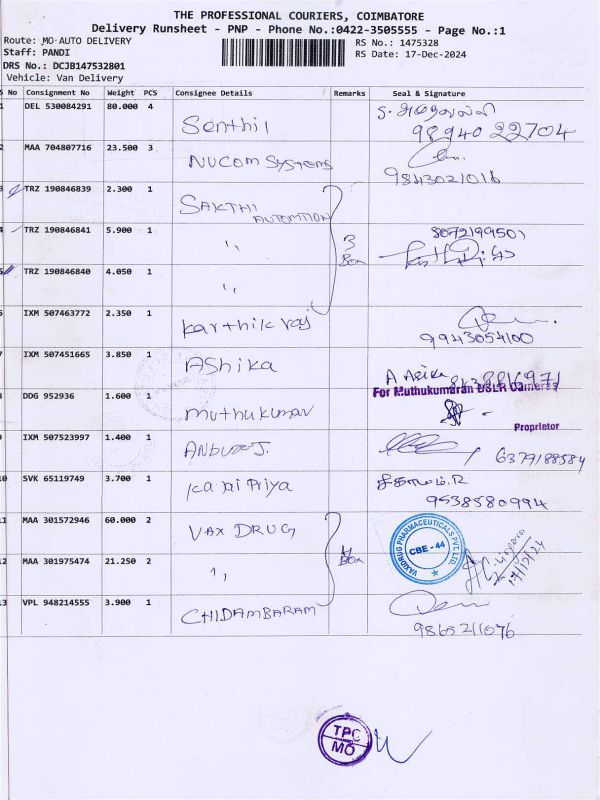 THE PROFESSIONAL COURIERS, COIMBATORE
Delivery Runsheet - PNP - Phone No.:0422-3505555 - Page No.:1
Route: MO-AUTO DELIVERY
RS No.: 1475328
Staff: PANDI
RS Date: 17-Dec-2024
DRS No.: DCJB147532801
Vehicle: Van Delivery
S No Consignment No Weight PCS Consignee Details Remarks Seal & Signature
DEL 530084291 80.000 4 Senthil
98940 22704
2 MAA 704807716 23.500 3 NUCOM SYSTEMS
9843021016
3 TRZ 190846839 2.300 1 SAKTHI AUTOMTION
4 TRZ 190846841 5.900 1 " 3 Box 8072199501
5 TRZ 190846840 4.050 1 "
6 IXM 507463772 2.350 1 Karthik raj
9943054100
7 IXM 507451665 3.850 1 AShika
8 DDG 952936 1.600 1 muthukumar
For Muthukumaran DSLR Cameras
Proprietor
9 IXM 507523997 1.400 1
6379188584
10 SVK 65119749 3.700 1
9538580994
11 MAA 301572946 60.000 2 VAX DRUG
VAXDRUG PHARMACEUTICALS PVT. LTD.
CBE - 44
12 MAA 301975474 21.250 2 " 4 Box
17/12/24
13 VPL 948214555 3.900 1 CHIDAMBARAM
9865211076
TPC
MO